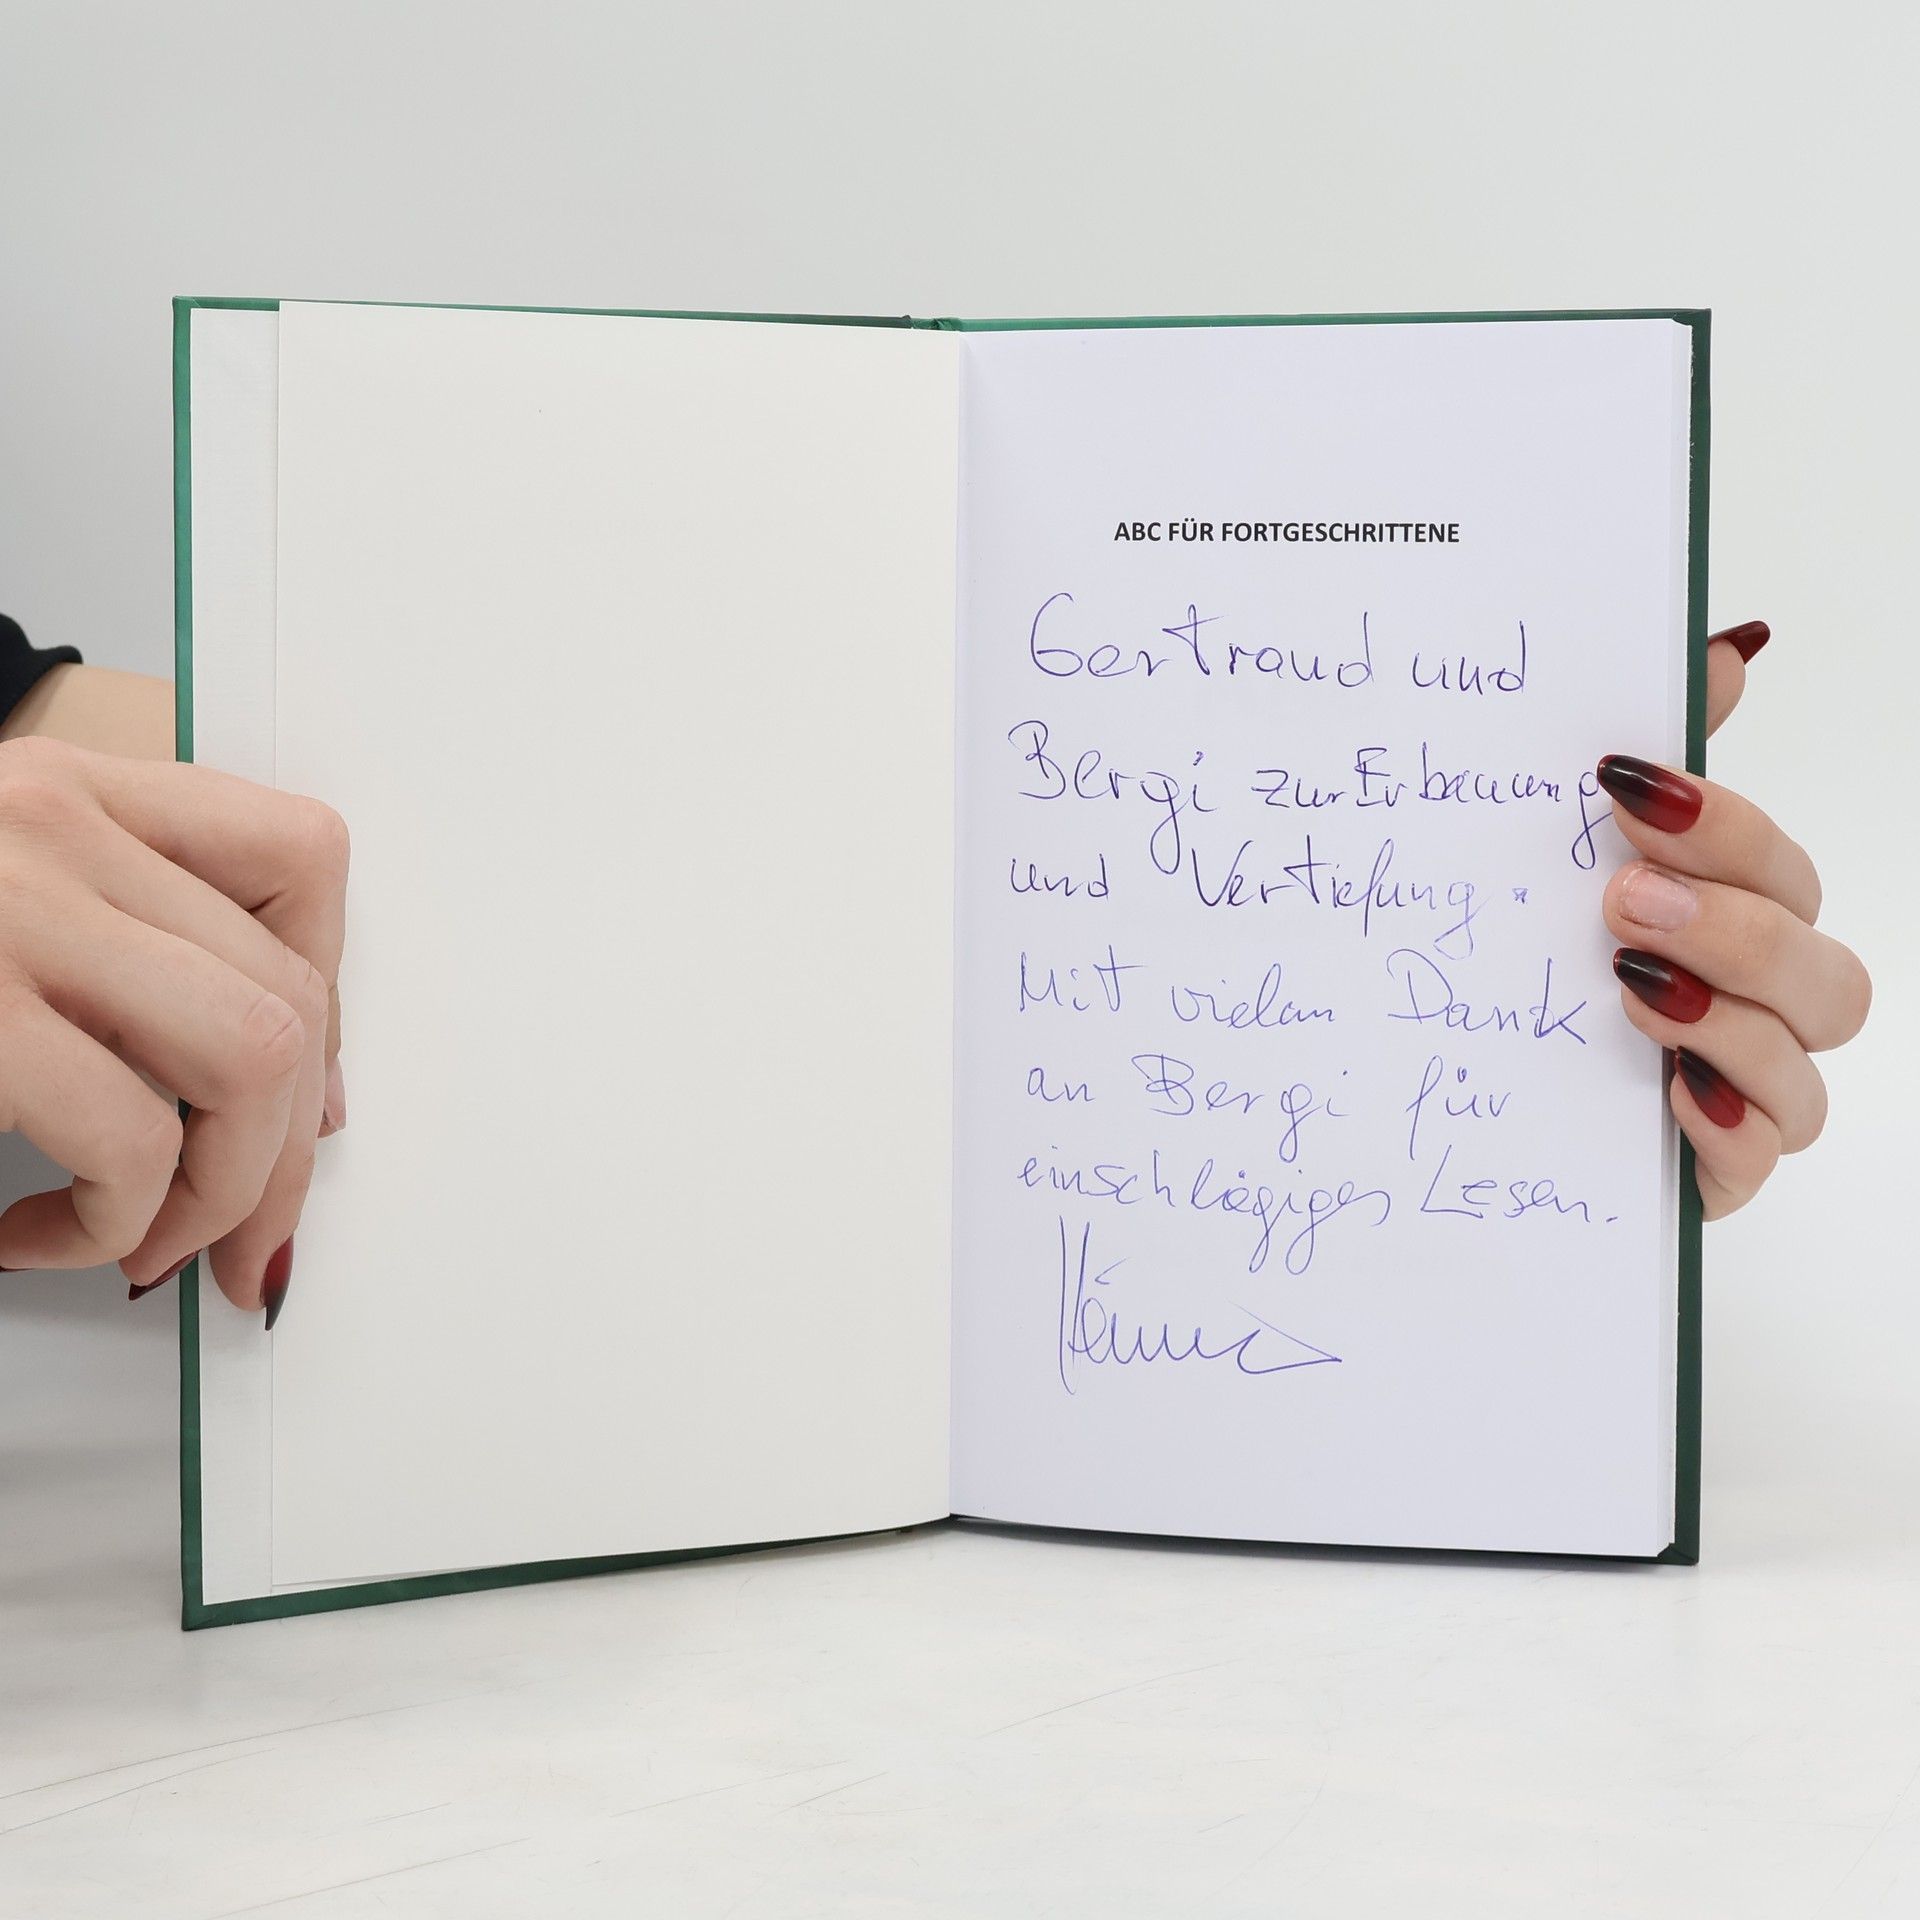 ABC FÜR FORTGESCHRITTENE
Gertraud und
Bergi zur Erbauung
und Vertiefung.
Mit vielen Dank
an Bergi für
einschlägiges Lesen.